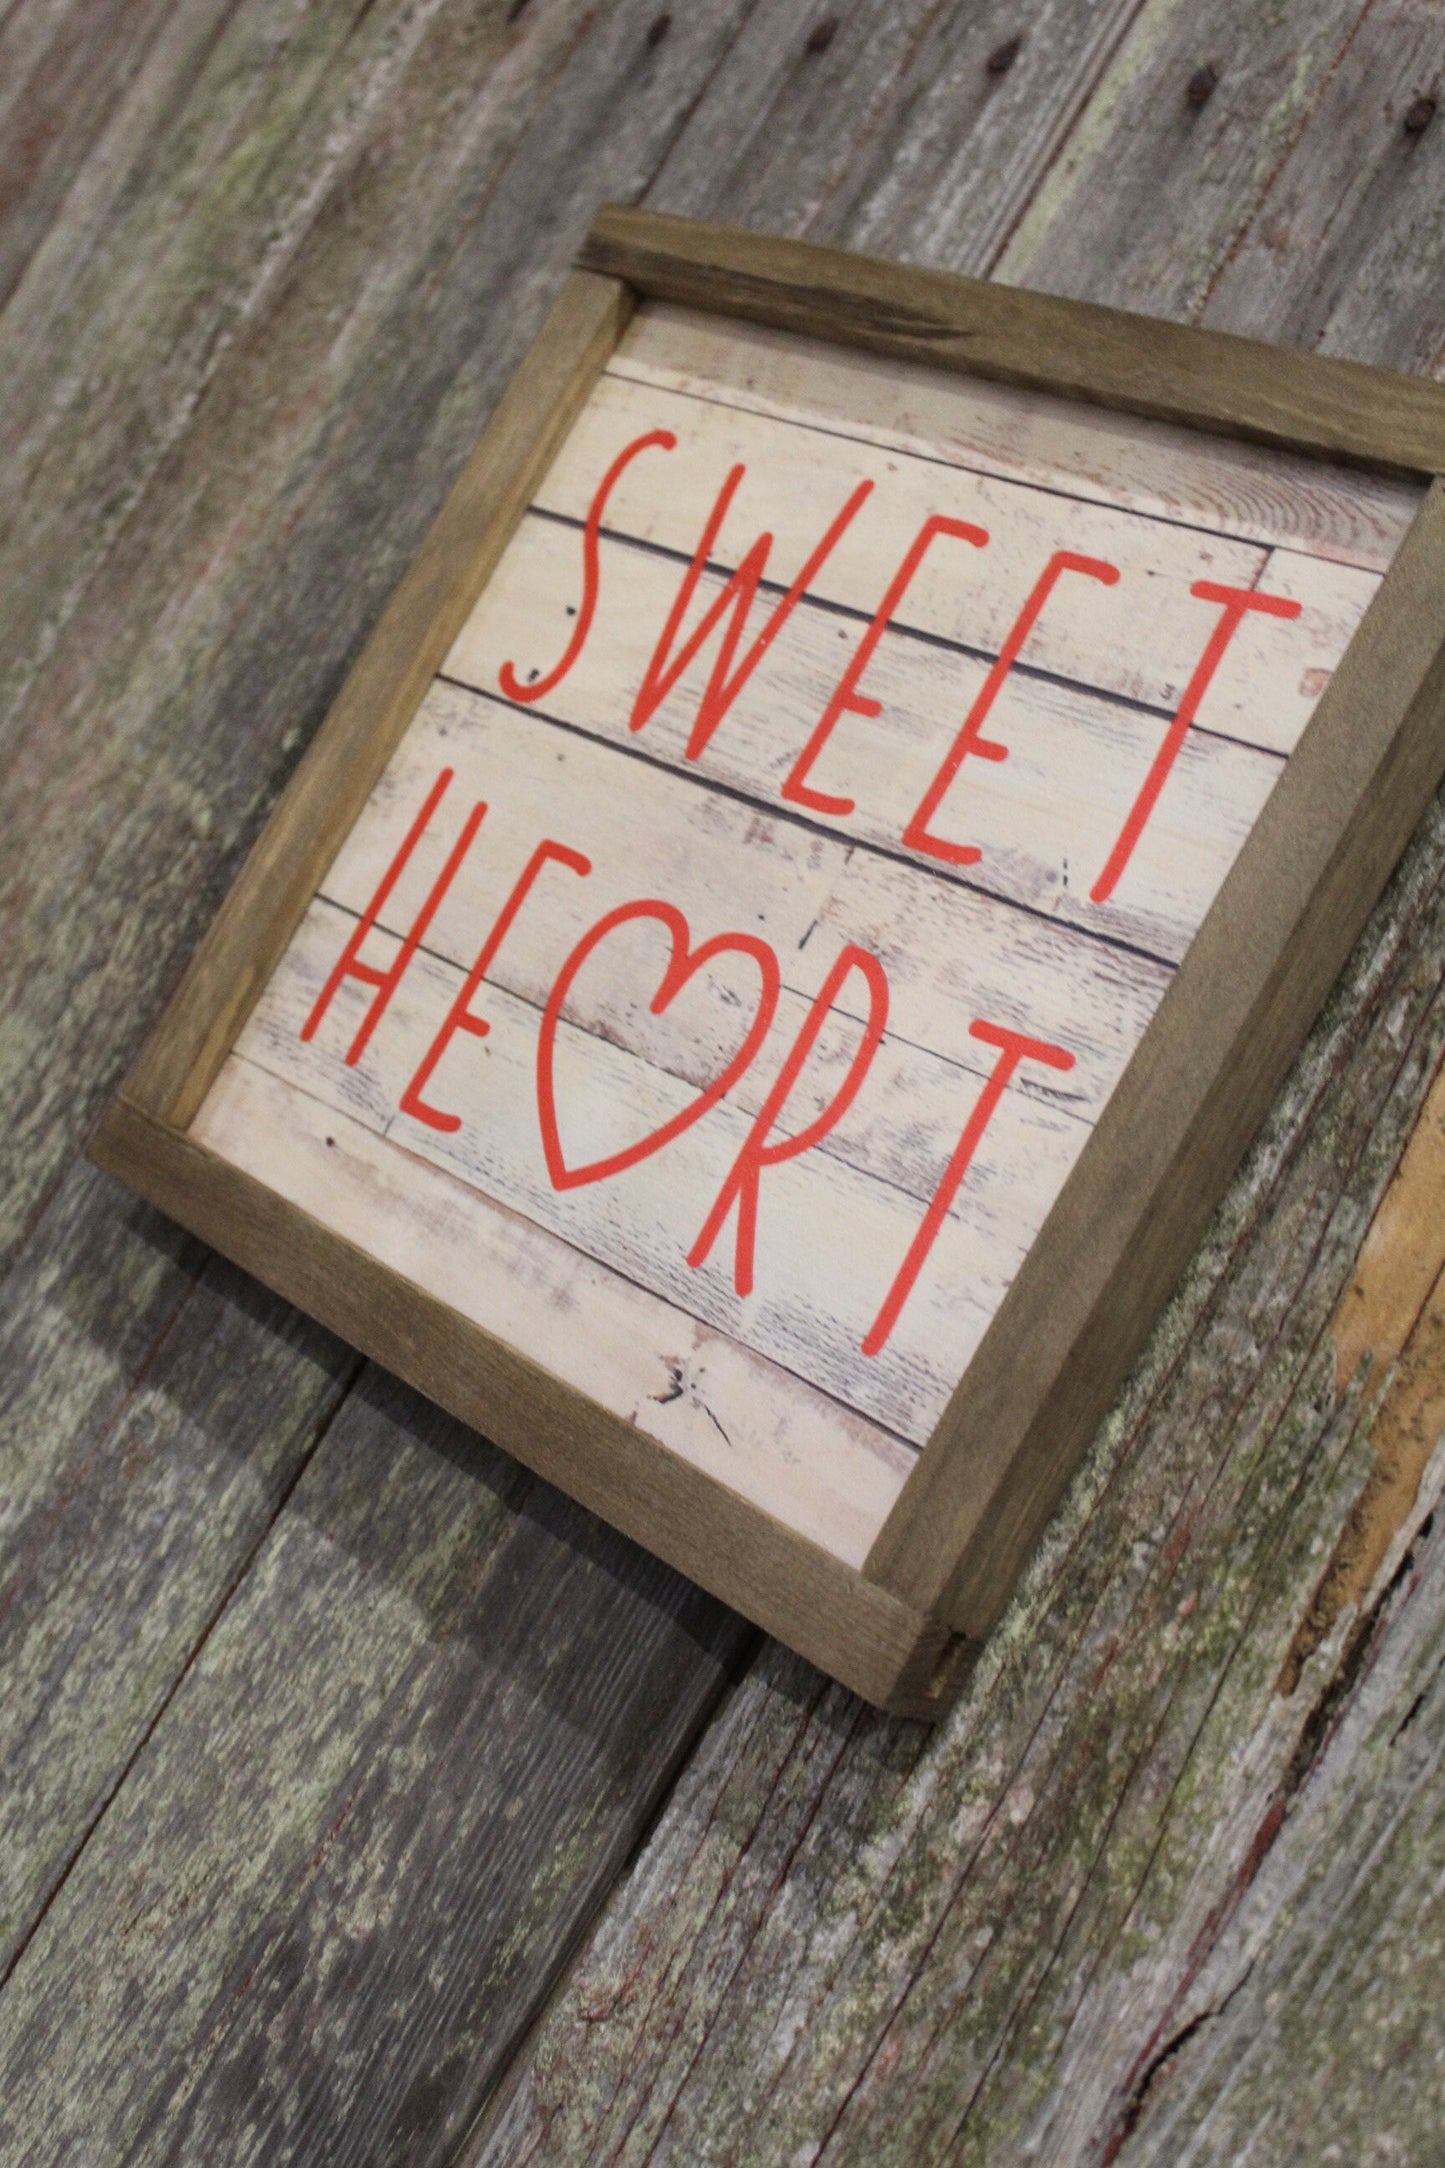 SWEET
HE♡RT